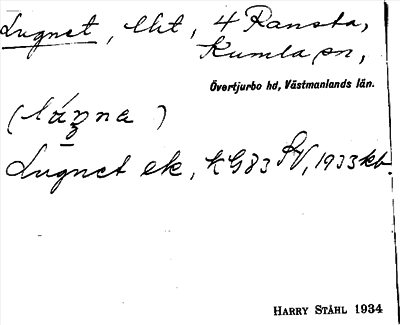 Lugnet, lht, 4 Ransta,
Kumla sn,
Övertjurbo hd, Västmanlands län.
Lugnet ek, KG83 SV, 1933 kb.
HARRY STÅHL 1934